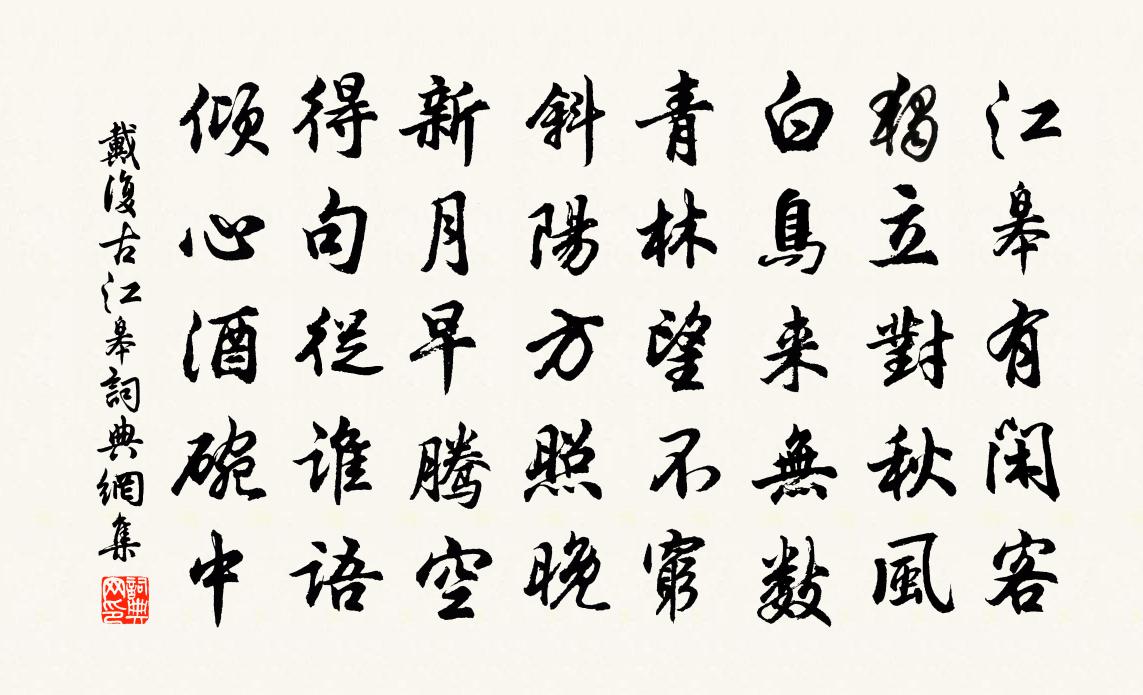 江皋有閑客
獨立對秋風
白鳥来無數
青林望不窮
斜陽方照晚
新月早騰空
得句從誰語
傾心酒碗中
戴復古江皋詞典網集
詞典
网印